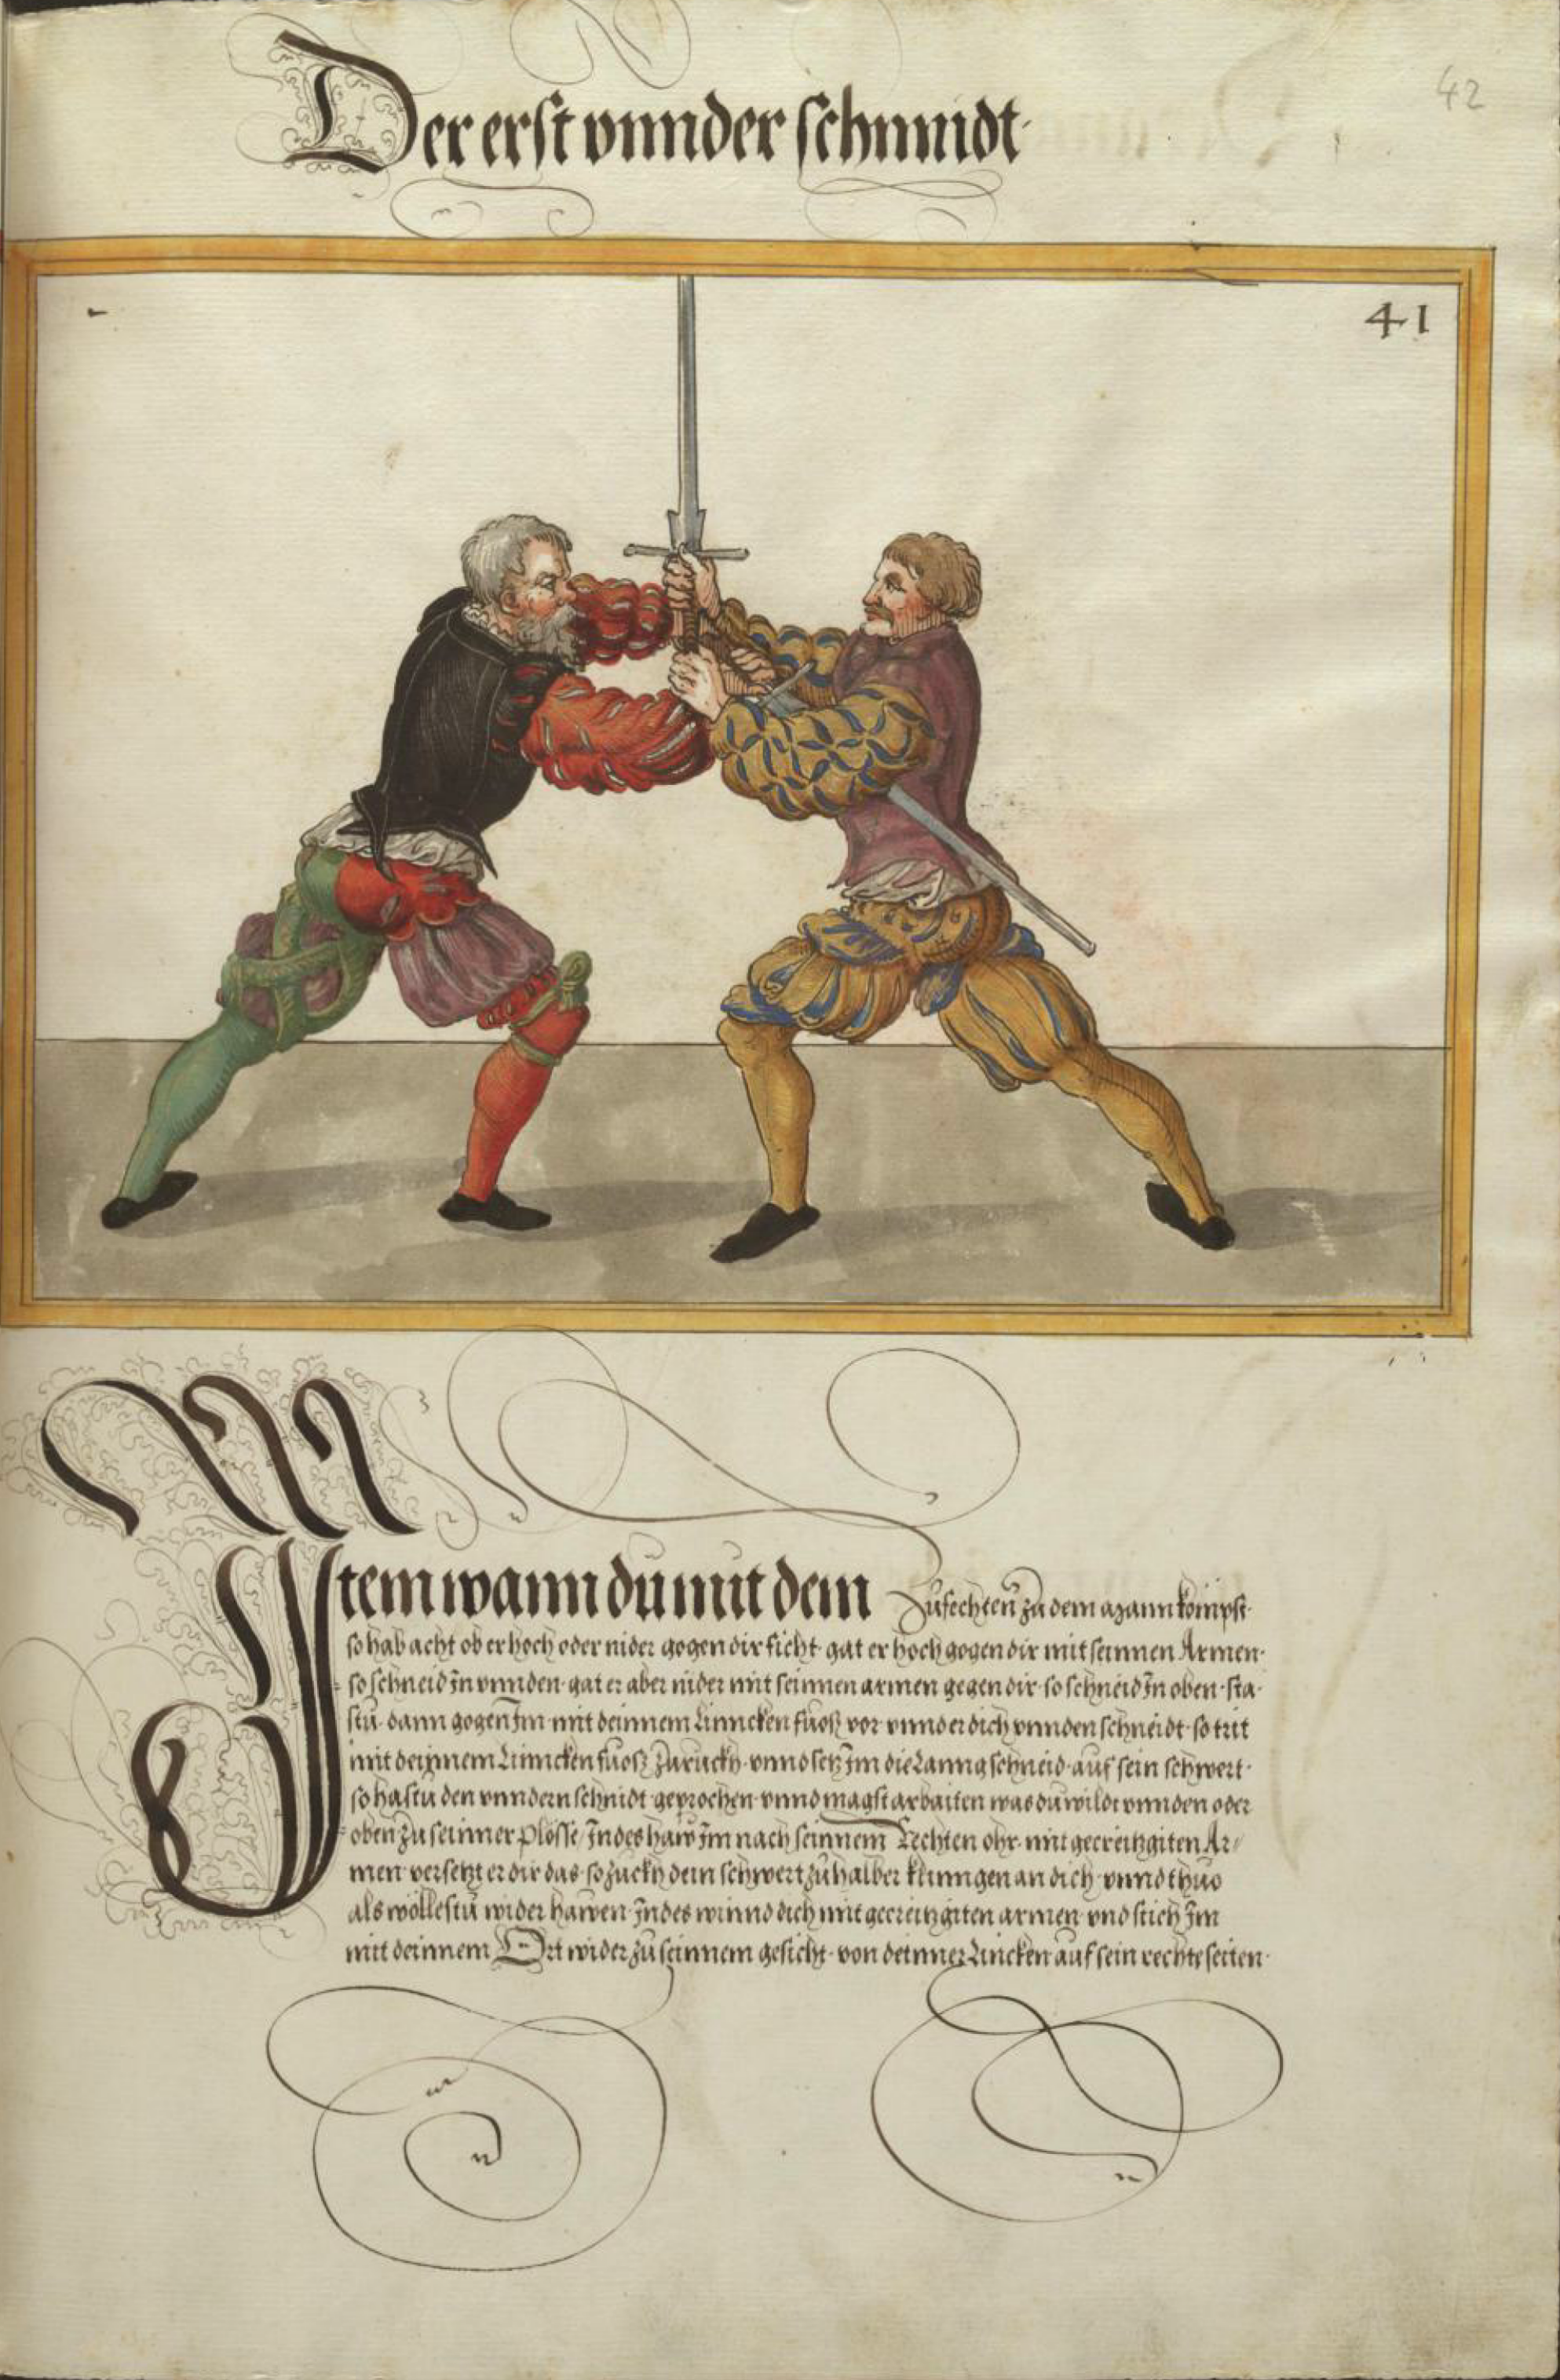 42
Der erst vnnder schnnidt
41
Item wann du mit dem zufechten zu dem mann kompst
so hab acht ob er hoch oder nider gogen dir ficht gat er hoch gogen dir mit seinnen Armen
so schneid Jn vnnden gat er aber nider mit seinnen armen gegen dir so schneid Jn oben sta
stu dann gogen Jm mit deinnem Linncken fuosz vor vnnd er dich vnnden schneidt so trit
mit deinnem Linncken fuosz zuruckh vnnd setz Jm die Lanng schneid auf sein schwert
so hastu den vnndern schnidt geprochen vnnd magst arbaiten was du wildt vnnden oder
oben zu seinner plosse Jndes haw Jm nach seinnem Rechten ohr mit gecreitzgiten Ar
men versetzt er dir das so zuckh dein schwert zu halber klinngen an dich vnnd thuo
als wöllestu wider hawen Jndes winnd dich mit gecreitzgiten armen vnd stich Jm
mit deinnem Ort wider zu seinnem gesicht von deinner Lincken auf sein rechte seiten